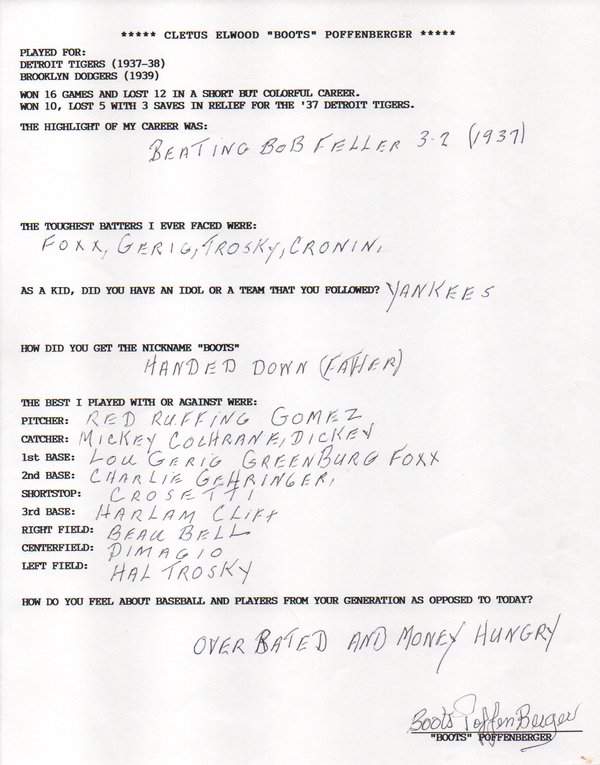 ***** CLETUS ELWOOD "BOOTS" POFFENBERGER *****
PLAYED FOR:
DETROIT TIGERS (1937-38)
BROOKLYN DODGERS (1939)
WON 16 GAMES AND LOST 12 IN A SHORT BUT COLORFUL CAREER.
WON 10, LOST 5 WITH 3 SAVES IN RELIEF FOR THE '37 DETROIT TIGERS.
THE HIGHLIGHT OF MY CAREER WAS:
BEATING BOB FELLER 3-2 (1937)
THE TOUGHEST BATTERS I EVER FACED WERE:
FOXX, GERIG, TROSKY, CRONIN,
AS A KID, DID YOU HAVE AN IDOL OR A TEAM THAT YOU FOLLOWED? YANKEES
HOW DID YOU GET THE NICKNAME "BOOTS"
HANDED DOWN (FATHER)
THE BEST I PLAYED WITH OR AGAINST WERE:
PITCHER: RED RUFFING GOMEZ
CATCHER: MICKEY COCHRANE, DICKEY
1st BASE: LOU GERIG GREENBURG FOXX
2nd BASE: CHARLIE GEHRINGER,
SHORTSTOP: CROSETTI
3rd BASE: HARLAM CLIFT
RIGHT FIELD: BEAU BELL
CENTERFIELD: DIMAGIO
LEFT FIELD: HAL TROSKY
HOW DO YOU FEEL ABOUT BASEBALL AND PLAYERS FROM YOUR GENERATION AS OPPOSED TO TODAY?
OVER RATED AND MONEY HUNGRY
Boots PoffenBerger
"BOOTS" POFFENBERGER